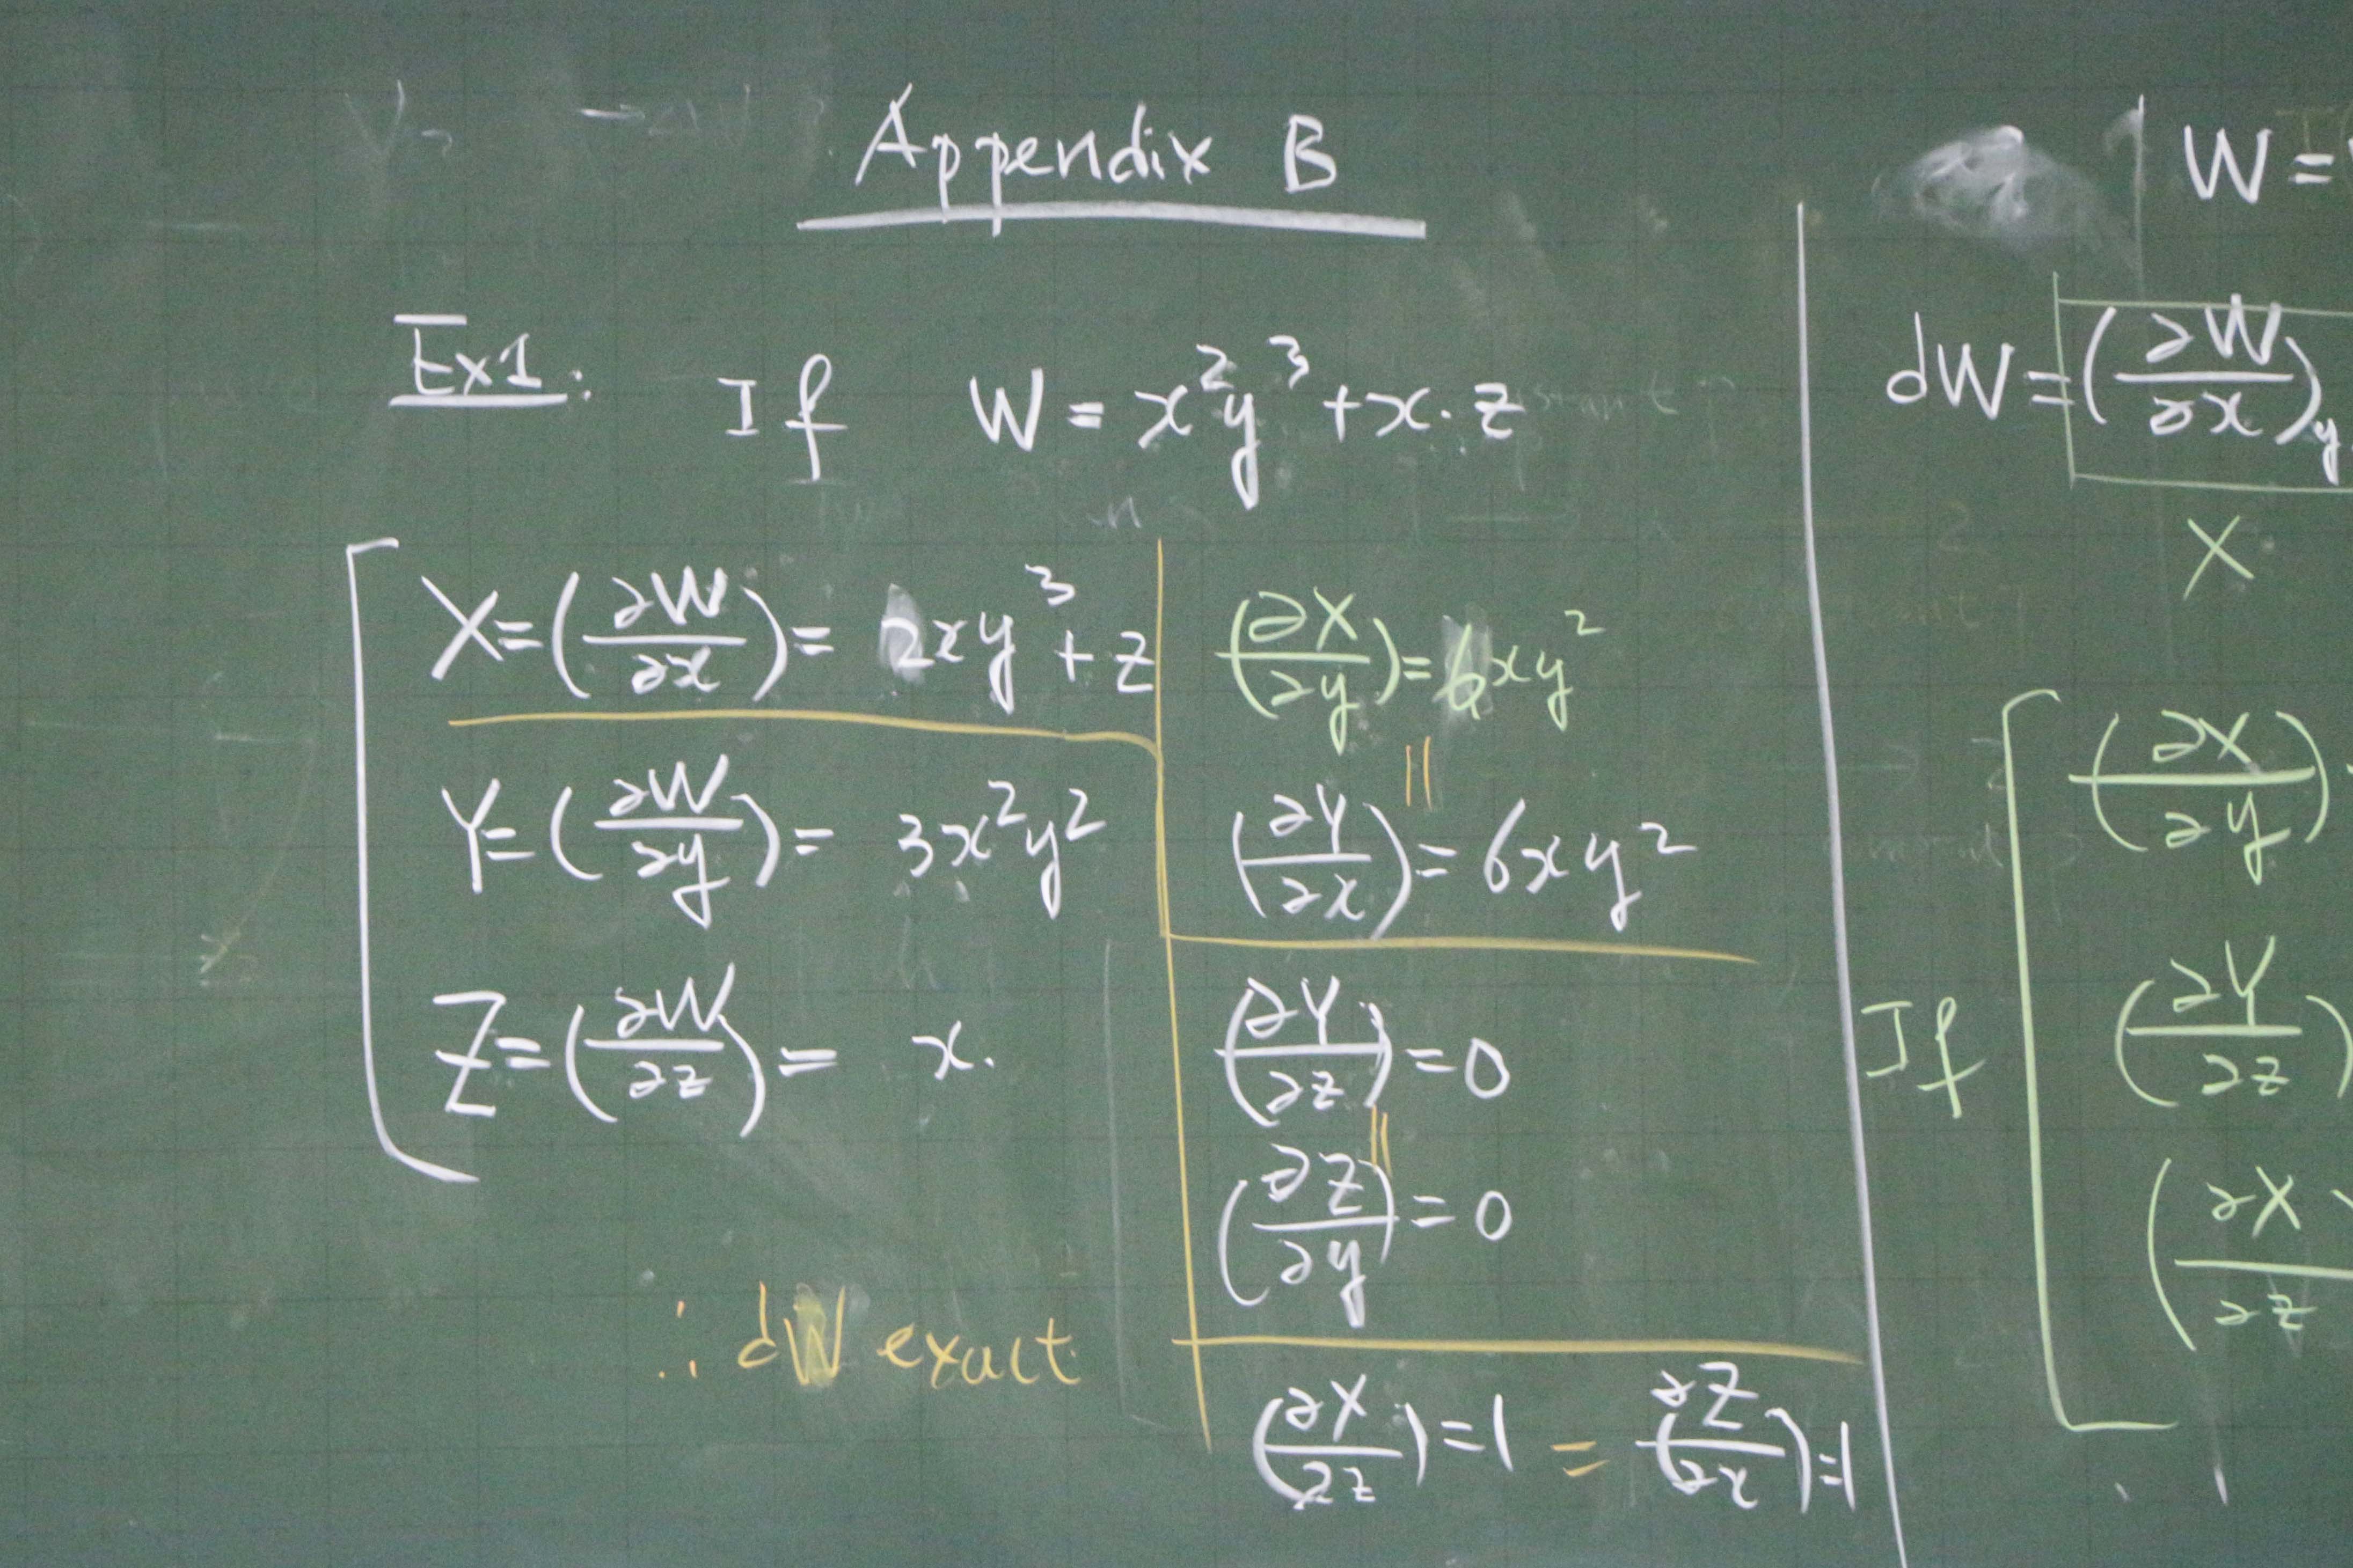 Appendix B
Ex1: If W = x²y³ + x·z
X = (∂W/∂x) = 2xy³ + z
Y = (∂W/∂y) = 3x²y²
Z = (∂W/∂z) = x.
∴ dW exact
(∂X/∂y) = 6xy²
||
(∂Y/∂x) = 6xy²
(∂Y/∂z) = 0
||
(∂Z/∂y) = 0
(∂X/∂z) = 1 = (∂Z/∂x) = 1
W =
dW = (∂W/∂x)y
X
If
(∂X/∂y)
(∂Y/∂z)
(∂X/∂z